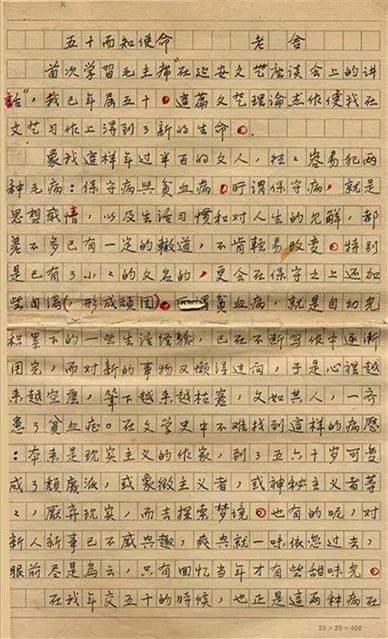 五十而知使命　老舍
首次学習毛主席"在延安文艺座谈会上的讲
話"，我已年届五十。這篇文艺理論杰作使我在
文艺习作上得到了新的生命。
象我這样年过半百的文人，往々容易犯两
种毛病：保守病與貧血病。所谓保守病，就是
思想感情，以及生活习惯和对人生的见解，都
差不多已有一定的轍道，不肯輕易改变。特别
是已有了小々的文名的，更会在保守之上还加
些自滿（，形成頑固）。所謂貧血病，就是自幼兒
积累下的一些生活经驗，已在不断写作中逐漸
用完，而对新的事物又懒得过问，于是心裡越
来越空虚，笔下越来越枯窘，文如其人，一齐
患了貧血症。在文学史中不难找到這样的病历
：本来是现实主义的作家，到了五六十岁可变
成了頹廢派，或象徵主义者，或神秘主义者等
々，厭弃现实，而去探索梦境。也有的呢，对
新人新事已不感興趣，爽兴就一味依恋过去，
眼前尽是烏云，只有回忆当年才有些甜味兒。
在我年交五十的時候，也正是這两种病在
20×20=400